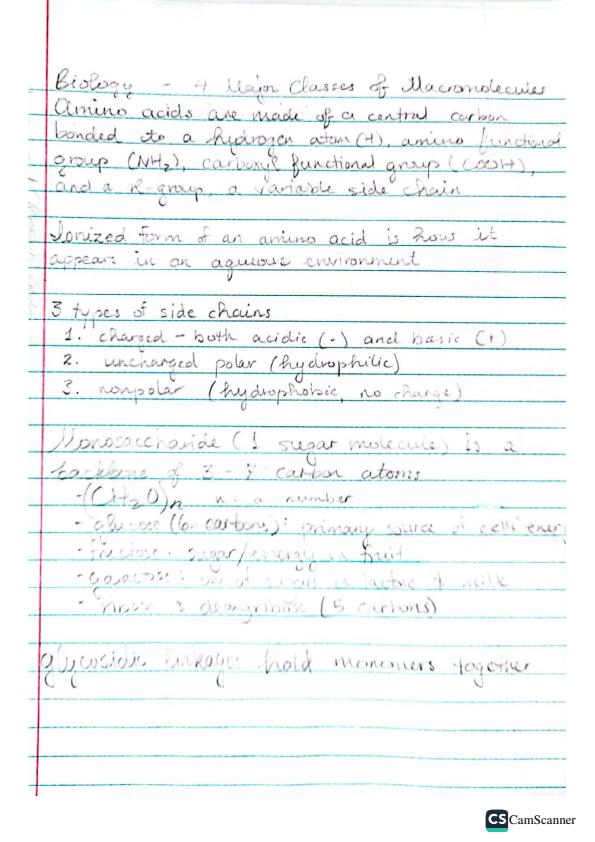 Biology - 4 Major Classes of Macromolecules
Amino acids are made of a central carbon
bonded to a hydrogen atom (H), amino functional
group (NH2), carboxyl functional group (COOH),
and a R-group, a variable side chain
Ionized form of an amino acid is how it
appears in an aqueous environment
3 types of side chains
1. charged - both acidic (-) and basic (+)
2. uncharged polar (hydrophilic)
3. nonpolar (hydrophobic, no charge)
Monosaccharide (1 sugar molecule) is a
backbone of 3 - 7 carbon atoms
- (CH2O)n n: a number
- glucose (6 carbons): primary source of cells' ener
- fructose: sugar/energy in fruit
- galactose: in lactose milk
- & deoxyribose (5 carbons)
glycosidic linkages hold monomers together
CS CamScanner